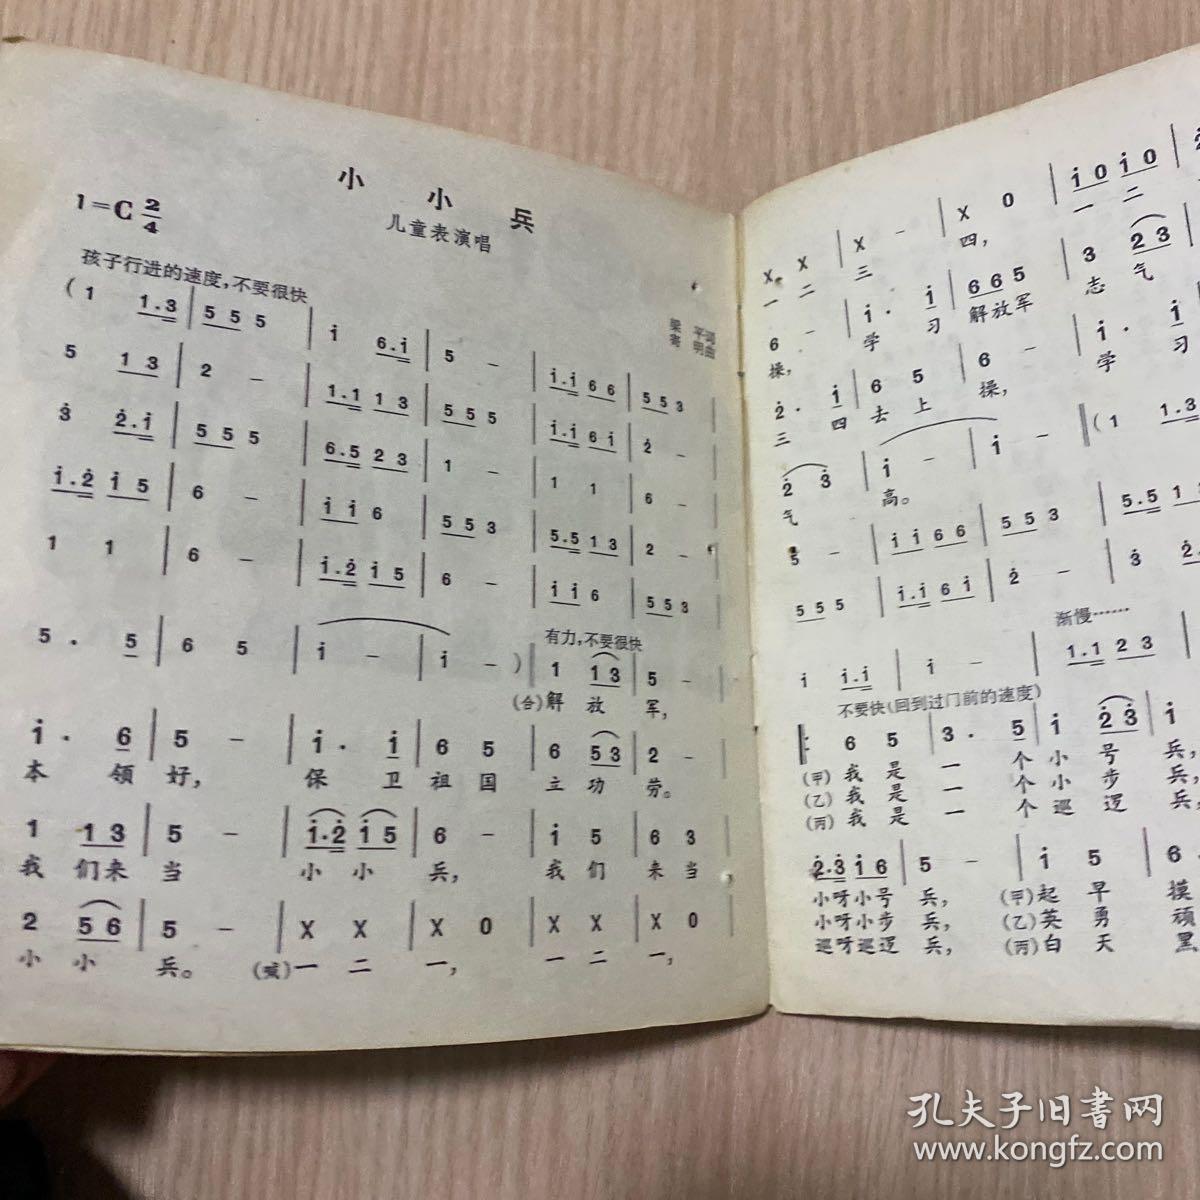 小 小 兵
1=C 2/4
儿童表演唱
孩子行进的速度,不要很快
梁 平词
寄 明曲
(1 1.3 | 5 5 5 | i 6.i | 5 - | i.i 6 6 | 5 5 3 |
5 1 3 | 2 - | 1.1 1 3 | 5 5 5 | i.i 6 i | 2̇ - |
3̇ 2̇.i | 5 5 5 | 6.5 2 3 | 1 - | 1 1 | 6 - |
i.2̇ i 5 | 6 - | i i 6 | 5 5 3 | 5.5 1 3 | 2 - |
1 1 | 6 - | i.2̇ i 5 | 6 - | i i 6 | 5 5 3 |
有力,不要很快
5. 5 | 6 5 | i - | i -) | 1 1 3 | 5 - |
(合)解 放 军,
i. 6 | 5 - | i. i | 6 5 | 6 5 3 | 2 - |
本 领 好, 保 卫 祖 国 立 功 劳。
1 1 3 | 5 - | i.2̇ i 5 | 6 - | i 5 | 6 3
我 们来 当 小 小 兵, 我 们 来 当
2 5 6 | 5 - | X X | X 0 | X X | X 0
小 小 兵。 (喊)一 二 一, 一 二 一,
X X | X - | X 0 | i 0 i 0 |
一 二 三 四, 一 二
6 - | i. i | 6 6 5 | 3 2 3
操, 学 习 解放军 志 气
2̇. i | 6 5 | 6 - | i. i
三 四 去 上 操, 学 习
2̇ 3̇ | i - | i - ‖ (1 1.3
气 高。
5 - | i i 6 6 | 5 5 3 | 5.5 1
5 5 5 | i.i 6 i | 2̇ - | 3̇ 2̇.
渐慢……
i i.i | i - | 1.1 2 3 |
不要快(回到过门前的速度)
6 5 | 3. 5 | i 2̇ 3̇ | i
(甲)我 是 一 个 小 号 兵,
(乙)我 是 一 个 小 步 兵,
(丙)我 是 一 个 巡 逻 兵,
2̇.3̇ i 6 | 5 - | i 5 | 6
小呀小号 兵, (甲)起 早 摸
小呀小步 兵, (乙)英 勇 顽
巡呀巡逻 兵, (丙)白 天 黑
孔夫子旧书网
www.kongfz.com